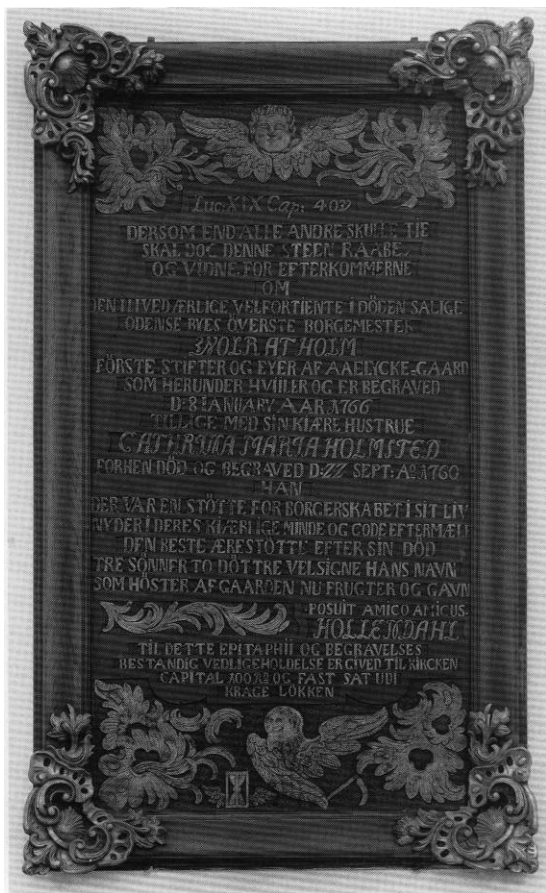 Luc: XIX Cap: 40 v
DERSOM END ALLE ANDRE SKULLE TIE
SKAL DOG DENNE STEEN RAABE
OG VIDNE FOR EFTERKOMMERNE
OM
DEN I LIVED ÆRLIGE VELFORTIENTE I DÖDEN SALIGE
ODENSE BYES ÖVERSTE BORGEMESTER
WOLRATH HOLM
FÖRSTE STIFTER OG EYER AF AAELYCKE-GAARD
SOM HERUNDER HVIILER OG ER BEGRAVED
D: 8 IANUARY AAR 1766
TILLIGE MED SIN KIÆRE HUSTRUE
CATHRINA MARIA HOLMSTED
FORHEN DÖD OG BEGRAVED D: 22 SEPT: Aº 1760
HAN
DER VAR EN STÖTTE FOR BORGERSKABET I SIT LIV
NYDER I DERES KIÆRLIGE MINDE OG GODE EFTERMÆLE
DEN BESTE ÆRESTÖTTE EFTER SIN DÖD
TRE SÖNNER TO DÖTTRE VELSIGNE HANS NAVN
SOM HÖSTER AF GAARDEN NU FRUGTER OG GAVN
POSUIT AMICO AMICUS.
HOLLENDAHL
TIL DETTE EPITAPHII OG BEGRAVELSES
BESTANDIG VEDLIGEHOLDELSE ER GIVED TIL KIRCKEN
CAPITAL 100 Rd OG FAST SAT UDI
KRAGE LÖKKEN